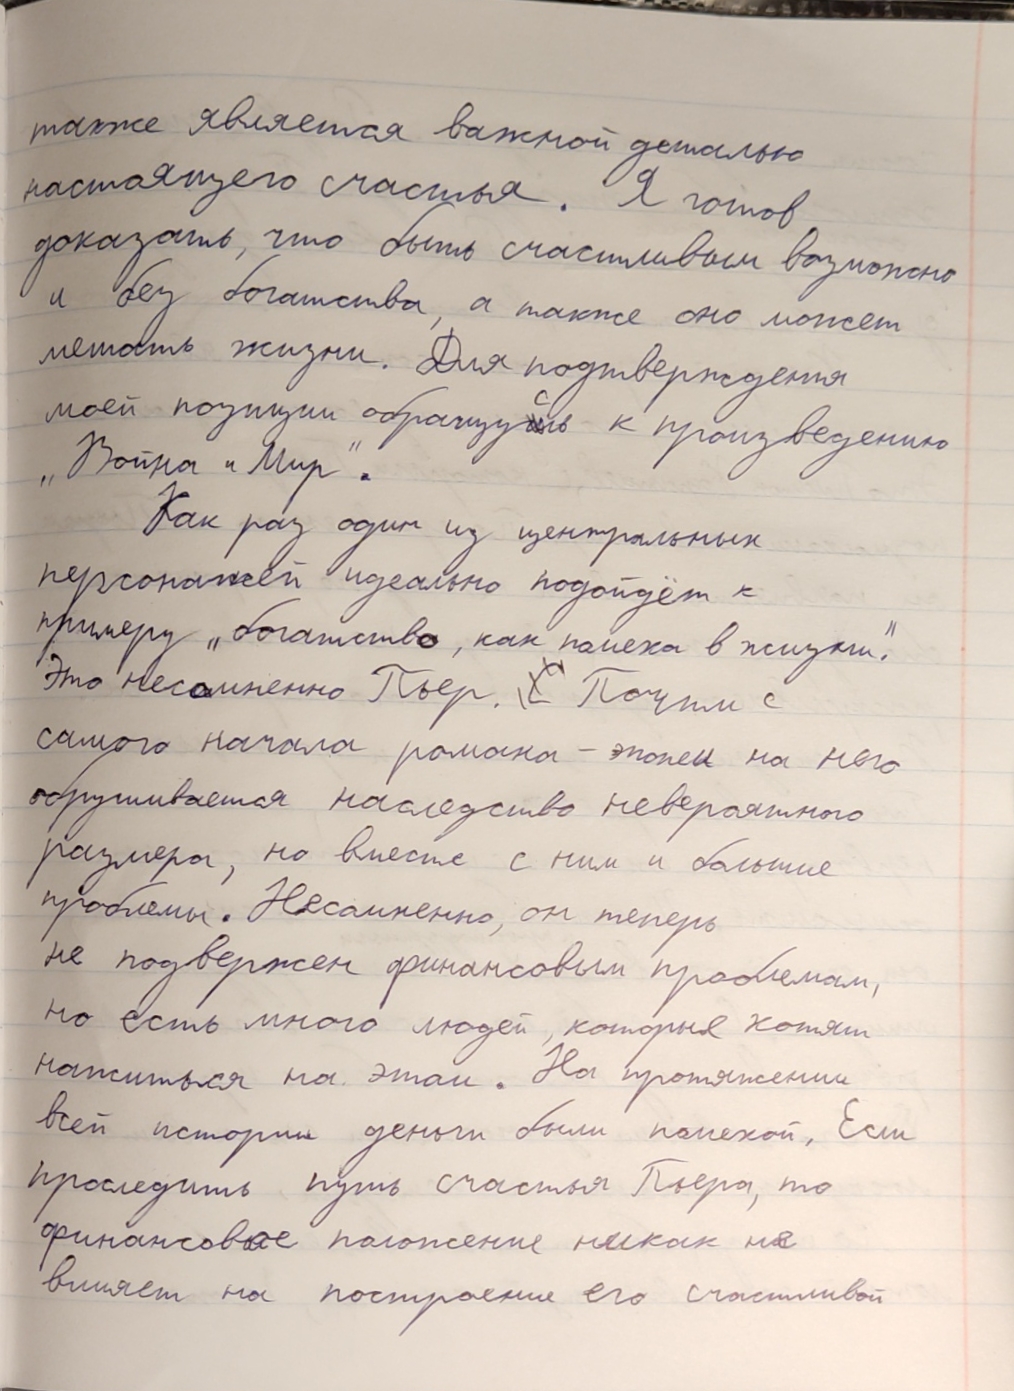 также является важной деталью
настоящего счастья. Я готов
доказать, что быть счастливым возможно
и без богатства, а также оно может
мешать жизни. Для подтверждения
моей позиции обращусь к произведению
„Война и Мир".
Как раз один из центральных
персонажей идеально подойдёт к
примеру „богатство, как помеха в жизни".
Это несомненно Пьер. Почти с
самого начала романа-эпопеи на него
обрушивается наследство невероятного
размера, но вместе с ним и большие
проблемы. Несомненно, он теперь
не подвержен финансовым проблемам,
но есть много людей, которые хотят
нажиться на этом. На протяжении
всей истории деньги были помехой. Если
проследить путь счастья Пьера, то
финансовое положение никак не
влияет на построение его счастливой